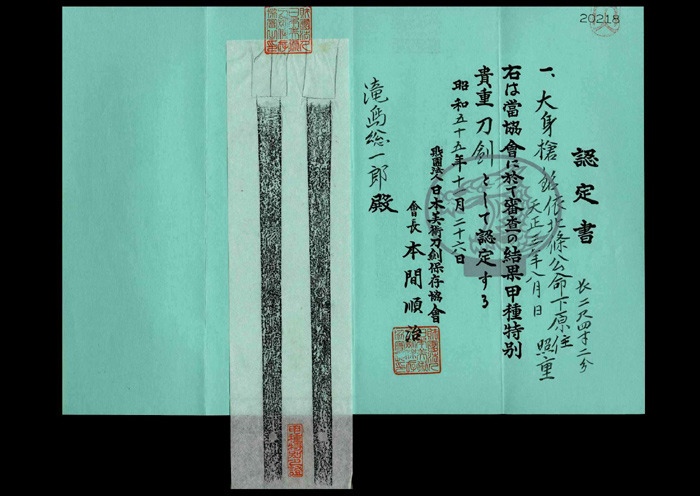 20218
認定書
一、大身槍 銘 依北條公命下原住照重
天正三年八月日
長二尺四寸二分
右は當協會に於て審査の結果甲種特別
貴重刀剣として認定する
昭和五十五年十一月二十六日
財團法人日本美術刀剣保存協會
會長 本間順治
総一郎殿